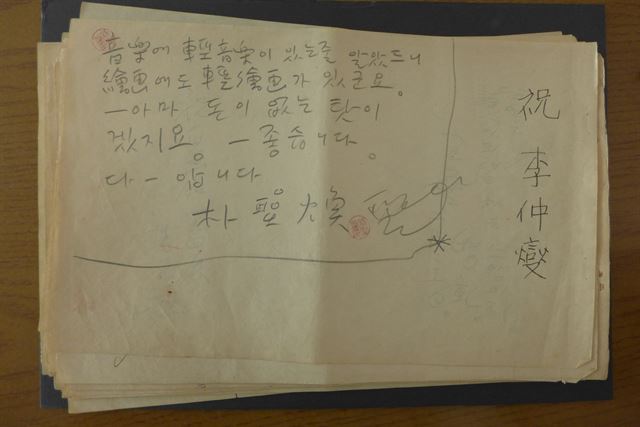 音樂에 輕音樂이 있는줄 알았드니
繪画에도 輕繪画가 있군요。
—아마 돈이 없는 탓이
겠지요。—좋습니다。
다—압니다
朴聖煥
祝 李仲燮